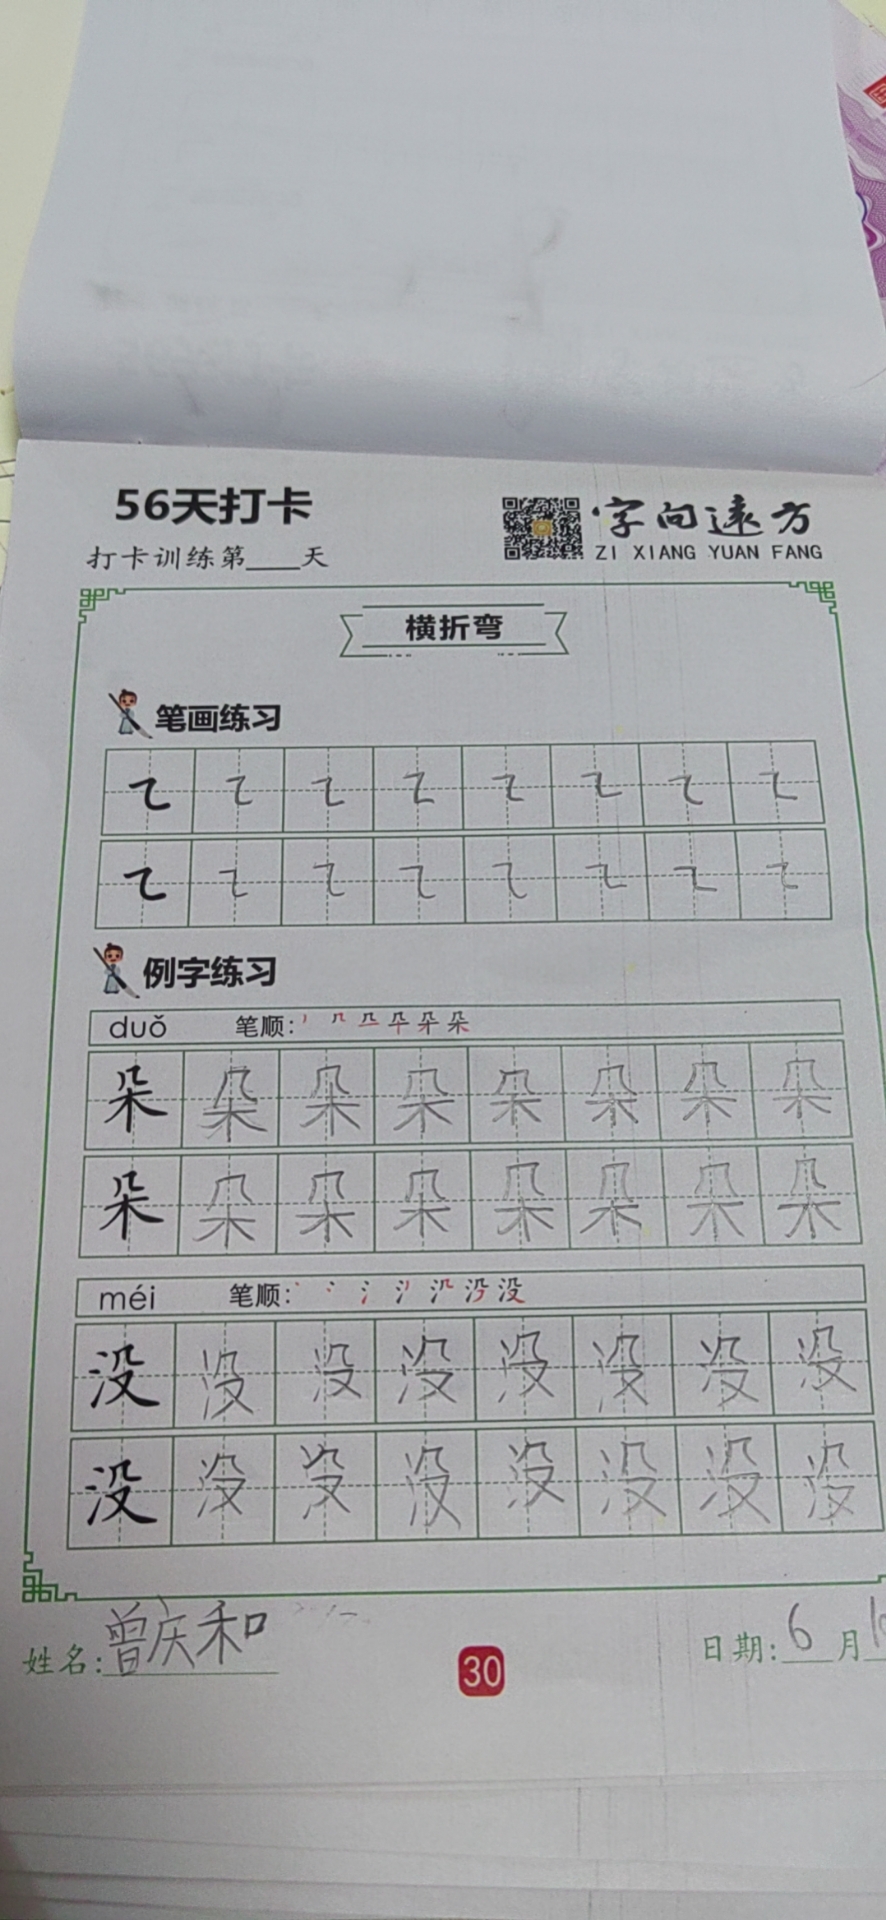 56天打卡
字向远方
打卡训练第___天
ZI XIANG YUAN FANG
横折弯
笔画练习
㇍ ㇍ ㇍ ㇍ ㇍ ㇍ ㇍ ㇍
㇍ ㇍ ㇍ ㇍ ㇍ ㇍ ㇍ ㇍
例字练习
duǒ 笔顺:
朵 朵 朵 朵 朵 朵 朵 朵
朵 朵 朵 朵 朵 朵 朵 朵
méi 笔顺:
没 没 没 没 没 没 没 没
没 没 没 没 没 没 没 没
姓名:曾庆和
30
日期:6月